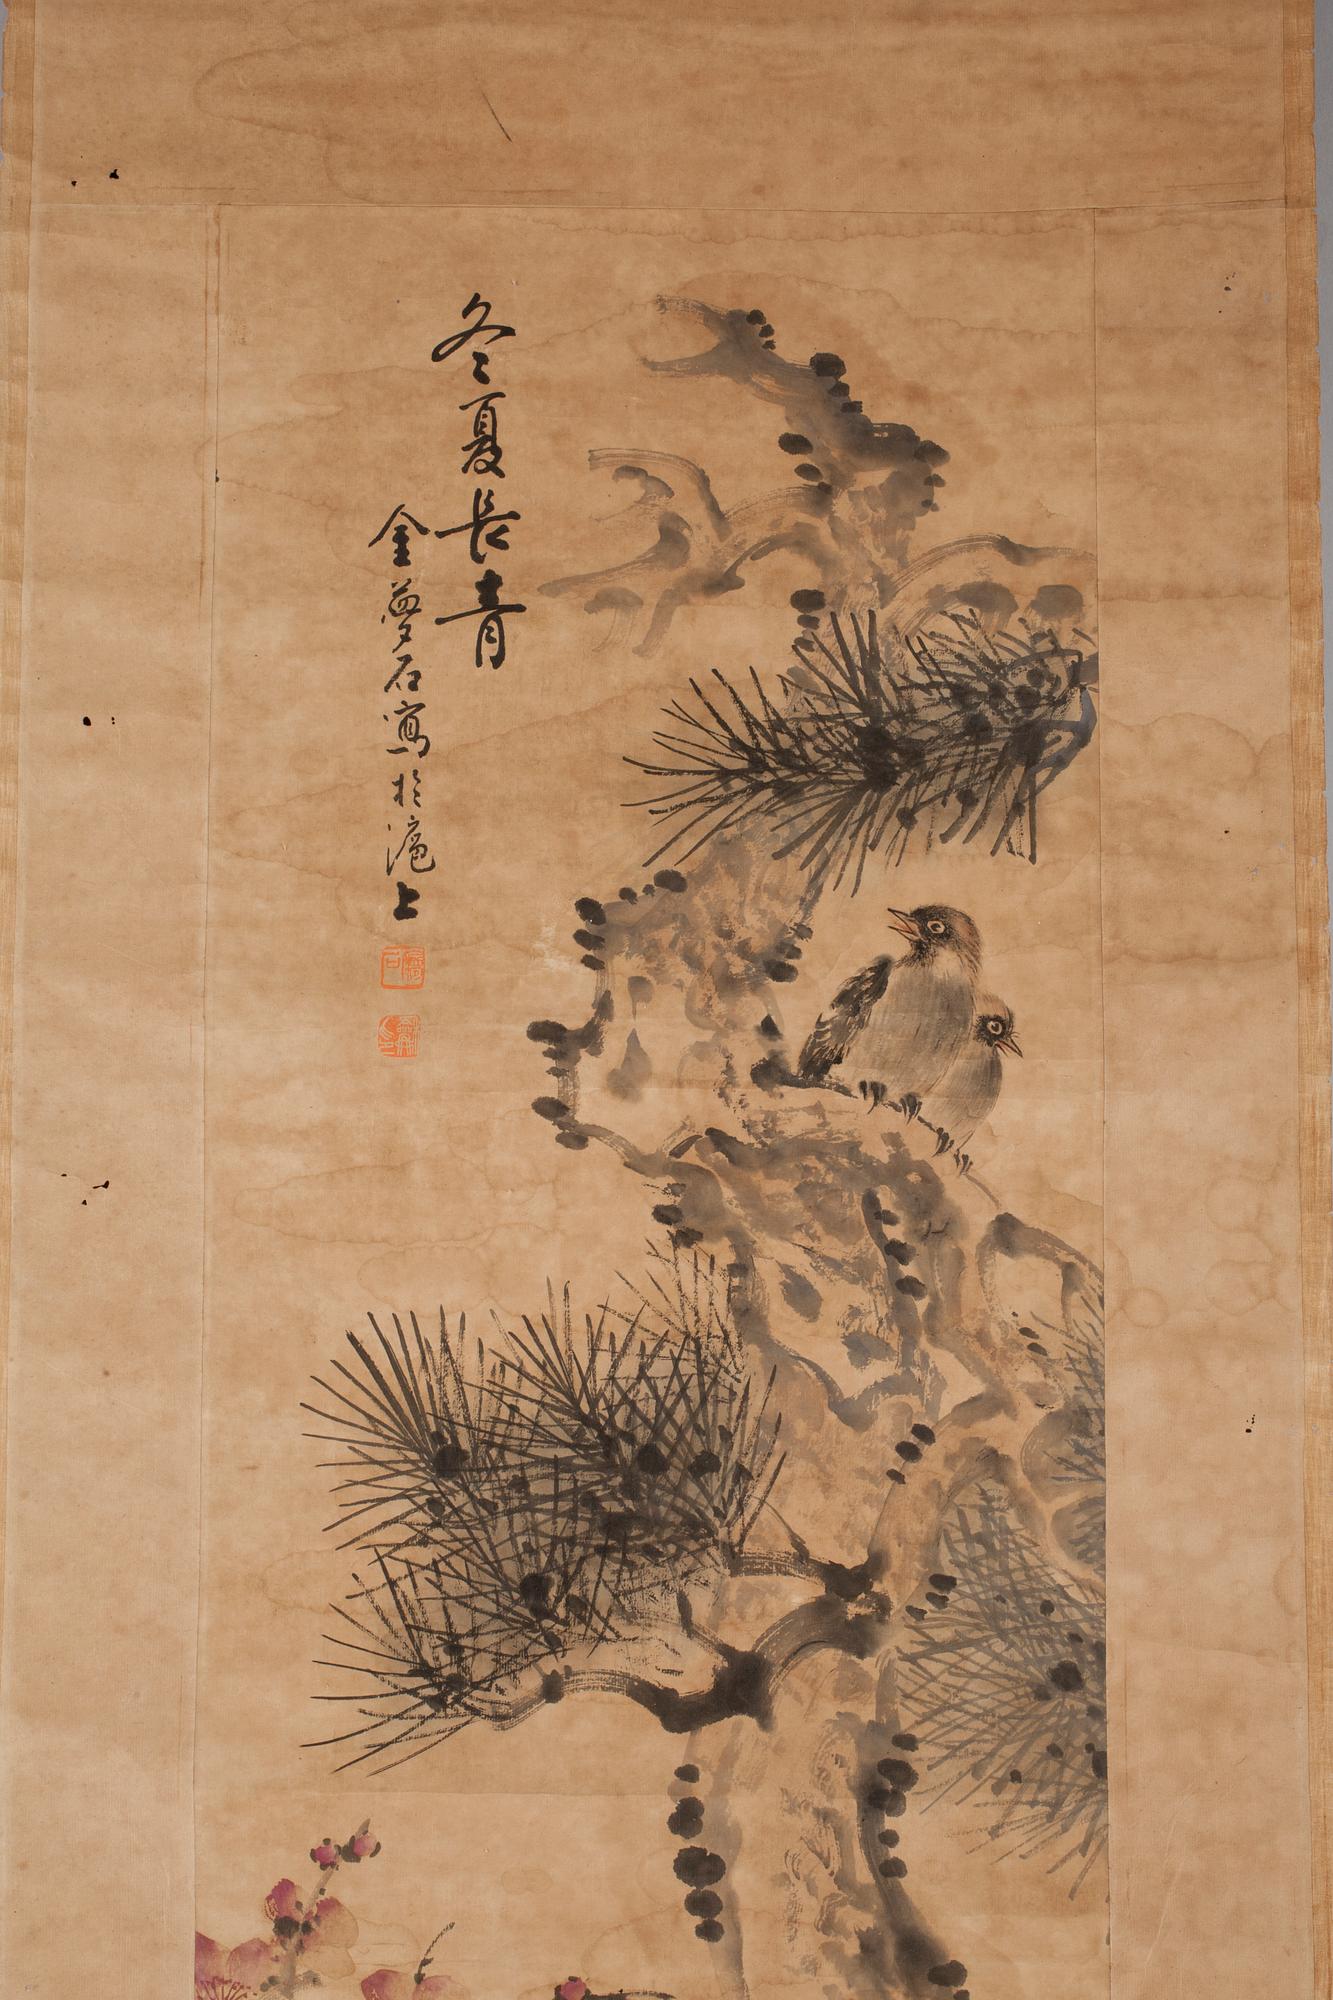 冬夏長青
金夢石寫於滬上